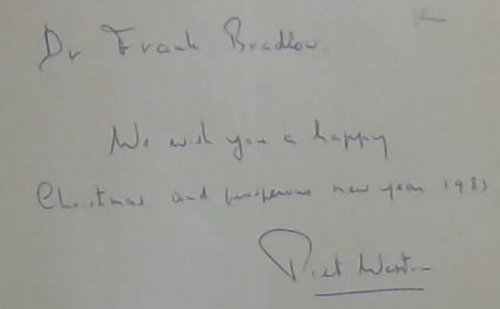 Dr Frank Bradlow
We wish you a happy
Christmas and prosperous new year 1983
Piet